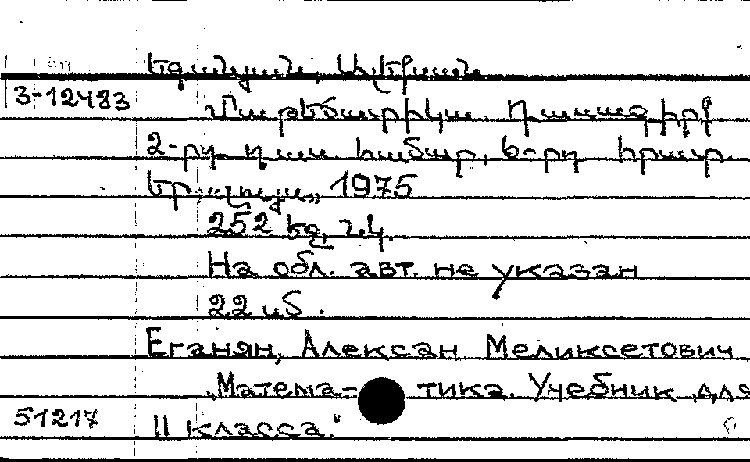 Եգանյան, Ալեքսան
3-12483
Մաթեմատիկա. Դասագիրք
2-րդ դաս. համար, 6-րդ հրատ.
Եր., Լույս, 1975
252 էջ, նկ.
На обл. авт. не указан
22 կ.
Еганян, Алексан Меликсетович
„Матема- тика. Учебник для
51217 II класса."